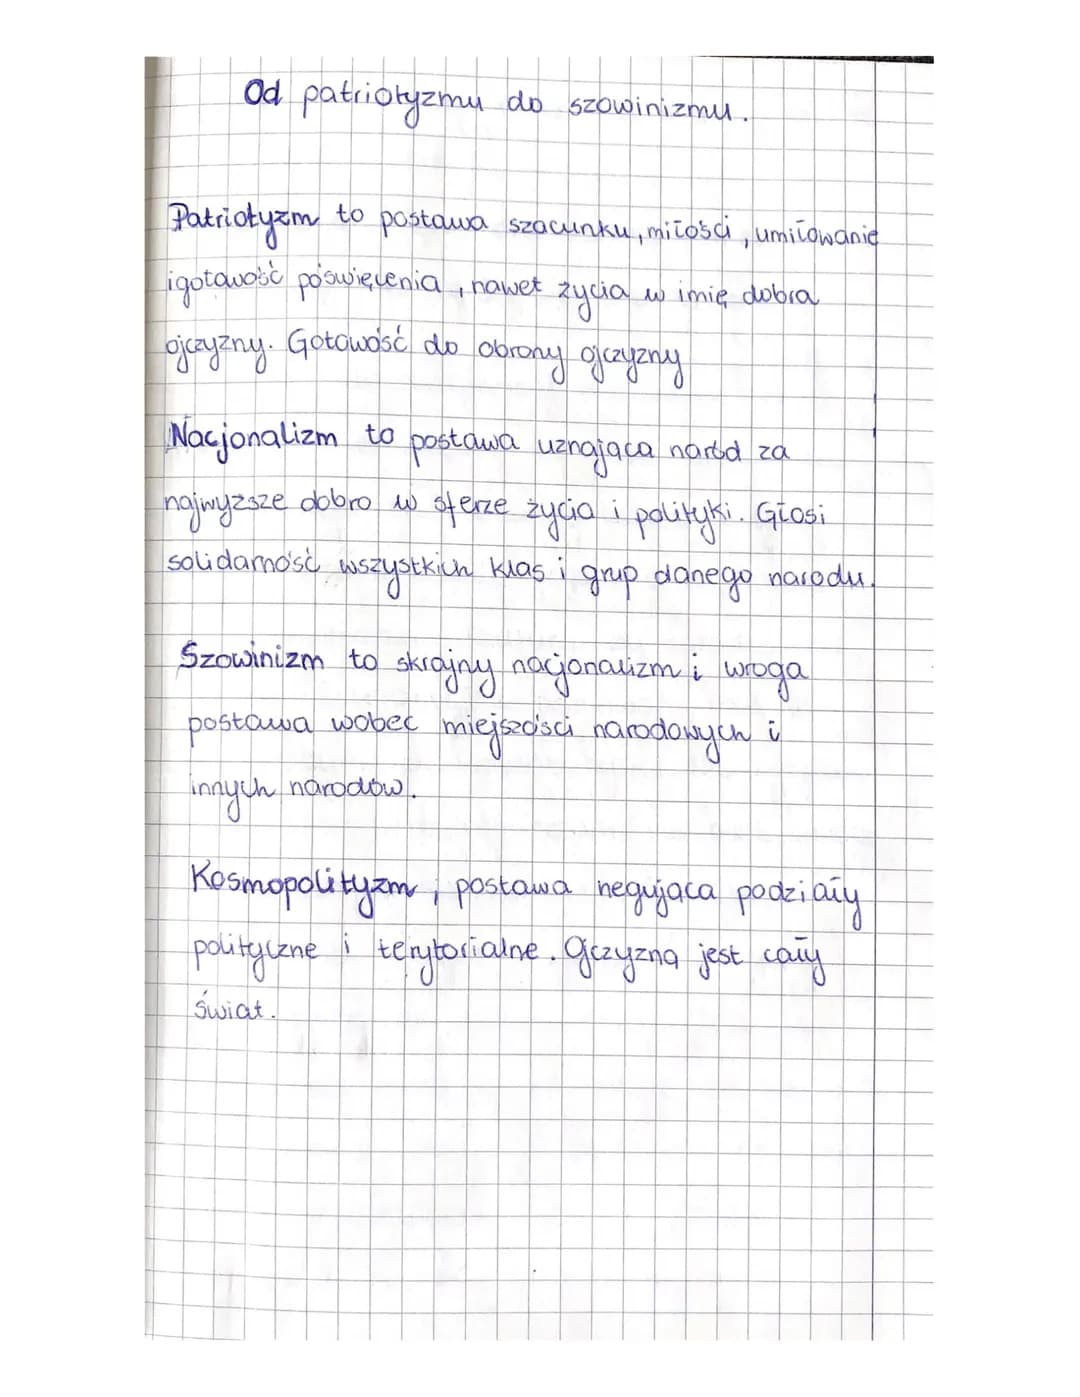 Od patriotyzmu do szowinizmu.
Patriotyzm to postawa szacunku, miłości, umiłowanie
i gotowość poświęcenia, nawet życia w imię dobra
ojczyzny. Gotowość do obrony ojczyzny
Nacjonalizm to postawa uznająca naród za
najwyższe dobro w sferze życia i polityki. Głosi
solidarność wszystkich klas i grup danego narodu.
Szowinizm to skrajny nacjonalizm i wroga
postawa wobec miejszości narodowych i
innych narodów.
Kosmopolityzm, postawa negująca podziały
polityczne i terytorialne. Ojczyzną jest cały
świat.